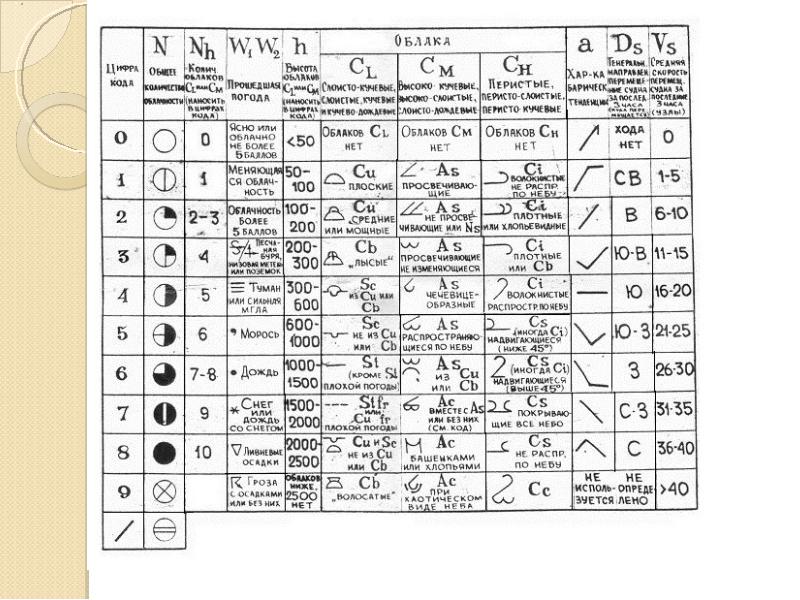 ЦИФРА КОДА
N
ОБЩЕЕ КОЛИЧЕСТВО ОБЛАЧНОСТИ
Nh
КОЛИЧ. ОБЛАКОВ CL ИЛИ CM (НАНОСИТЬ В ЦИФРАХ КОДА)
W1 W2
ПРОШЕДШАЯ ПОГОДА
h
ВЫСОТА ОБЛАКОВ CL ИЛИ CM (НАНОСИТЬ В ЦИФРАХ КОДА)
ОБЛАКА
CL
СЛОИСТО-КУЧЕВЫЕ, СЛОИСТЫЕ, КУЧЕВЫЕ И КУЧЕВО-ДОЖДЕВЫЕ
CM
ВЫСОКО-КУЧЕВЫЕ, ВЫСОКО-СЛОИСТЫЕ, СЛОИСТО-ДОЖДЕВЫЕ
CH
ПЕРИСТЫЕ, ПЕРИСТО-СЛОИСТЫЕ, ПЕРИСТО-КУЧЕВЫЕ
a
ХАР-КА БАРИЧЕСК. ТЕНДЕНЦИИ
Ds
ГЕНЕРАЛЬН. НАПРАВЛЕН. ПЕРЕМЕЩЕНИЕ СУДНА ЗА ПОСЛЕД. 3 ЧАСА
Vs
СРЕДНЯЯ СКОРОСТЬ ПЕРЕМЕЩ. СУДНА ЗА ПОСЛЕДНИЕ 3 ЧАСА (УЗЛЫ)
0 0 ЯСНО ИЛИ ОБЛАЧНО НЕ БОЛЕЕ 5 БАЛЛОВ <50 ОБЛАКОВ CL НЕТ ОБЛАКОВ CM НЕТ ОБЛАКОВ CH НЕТ ХОДА НЕТ 0
1 1 МЕНЯЮЩАЯСЯ ОБЛАЧНОСТЬ 50-100 Cu ПЛОСКИЕ As ПРОСВЕЧИВАЮЩИЕ Ci ВОЛОКНИСТЫЕ НЕ РАСПР. ПО НЕБУ СВ 1-5
2 2-3 ОБЛАЧНОСТЬ БОЛЕЕ 5 БАЛЛОВ 100-200 Cu СРЕДНИЕ ИЛИ МОЩНЫЕ As НЕ ПРОСВЕЧИВАЮЩИЕ ИЛИ Ns Ci ПЛОТНЫЕ ИЛИ ХЛОПЬЕВИДНЫЕ В 6-10
3 4 ПЕСЧАНАЯ БУРЯ, НИЗОВАЯ МЕТЕЛЬ ИЛИ ПОЗЕМОК 200-300 Cb „ЛЫСЫЕ" As ПРОСВЕЧИВАЮЩИЕ НЕ ИЗМЕНЯЮЩИЕСЯ Ci ПЛОТНЫЕ ИЛИ Cb Ю-В 11-15
4 5 ТУМАН ИЛИ СИЛЬНАЯ МГЛА 300-600 Sc ИЗ Cu ИЛИ Cb As ЧЕЧЕВИЦЕОБРАЗНЫЕ Ci ВОЛОКНИСТЫЕ РАСПРОСТР. ПО НЕБУ Ю 16-20
5 6 МОРОСЬ 600-1000 Sc НЕ ИЗ Cu ИЛИ Cb As РАСПРОСТРАНЯЮЩИЕСЯ ПО НЕБУ Cs (ИНОГДА Ci) НАДВИГАЮЩИЕСЯ (НИЖЕ 45°) Ю-З 21-25
6 7-8 ДОЖДЬ 1000-1500 St (КРОМЕ St ПЛОХОЙ ПОГОДЫ) As ИЗ Cu ИЛИ Cb Cs (ИНОГДА Ci) НАДВИГАЮЩИЕСЯ (ВЫШЕ 45°) З 26-30
7 9 СНЕГ ИЛИ ДОЖДЬ СО СНЕГОМ 1500-2000 St fr ИЛИ Cu fr ПЛОХОЙ ПОГОДЫ Ac ВМЕСТЕ С As ИЛИ БЕЗ НИХ (СМ. КОД) Cs ПОКРЫВАЮЩИЕ ВСЕ НЕБО С-З 31-35
8 10 ЛИВНЕВЫЕ ОСАДКИ 2000-2500 Cu И Sc НЕ ИЗ Cu ИЛИ Cb Ac БАШЕНКАМИ ИЛИ ХЛОПЬЯМИ Cs НЕ РАСПР. ПО НЕБУ С 36-40
9 ГРОЗА С ОСАДКАМИ ИЛИ БЕЗ НИХ ОБЛАКОВ НИЖЕ 2500 НЕТ Cb „ВОЛОСАТЫЕ" Ac ПРИ ХАОТИЧЕСКОМ ВИДЕ НЕБА Cc НЕ ИСПОЛЬЗУЕТСЯ НЕ ОПРЕДЕЛЕНО >40
/